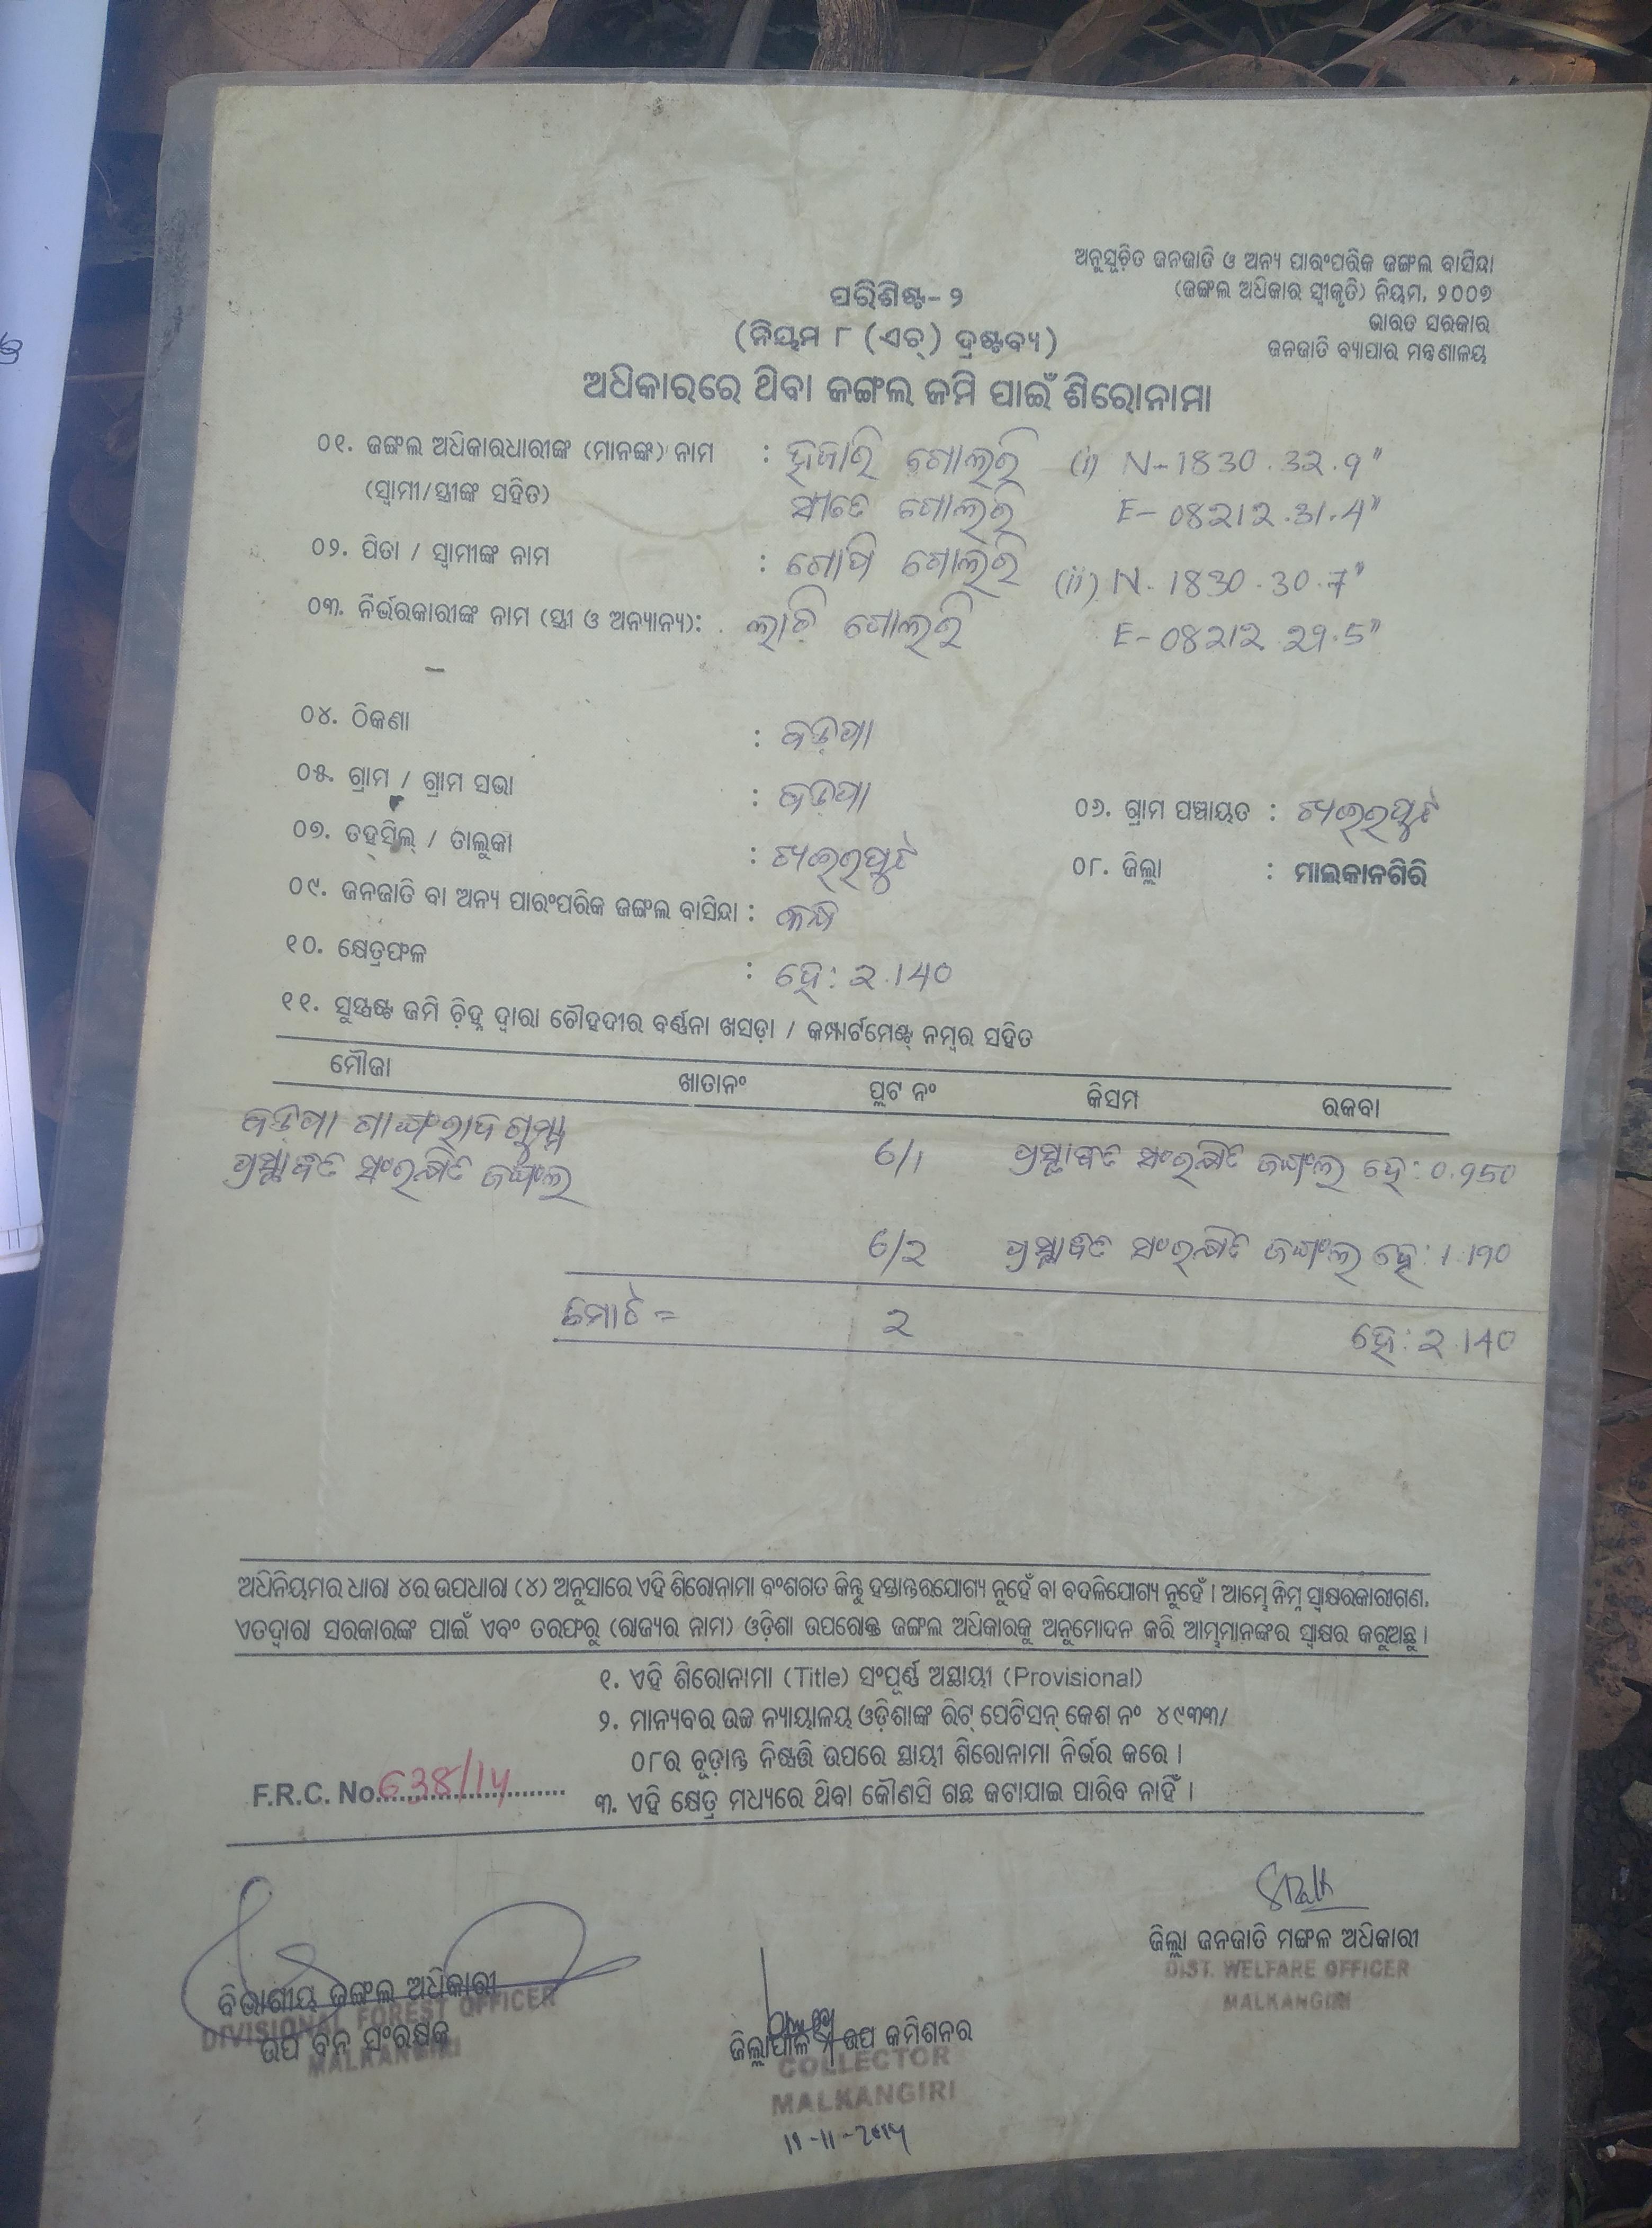 ଅନୁସୂଚିତ ଜନଜାତି ଓ ଅନ୍ୟ ପାରଂପରିକ ଜଙ୍ଗଲ ବାସିନ୍ଦା
(ଜଙ୍ଗଲ ଅଧିକାର ସ୍ୱୀକୃତି) ନିୟମ, ୨୦୦୭
ଭାରତ ସରକାର
ଜନଜାତି ବ୍ୟାପାର ମନ୍ତ୍ରଣାଳୟ
ପରିଶିଷ୍ଟ- ୨
(ନିୟମ ୮ (ଏଚ୍) ଦ୍ରଷ୍ଟବ୍ୟ)
ଅଧିକାରରେ ଥିବା ଜଙ୍ଗଲ ଜମି ପାଇଁ ଶିରୋନାମା
୦୧. ଜଙ୍ଗଲ ଅଧିକାରଧାରୀଙ୍କ (ମାନଙ୍କ) ନାମ : ହଜାରି ଗୋଲରି (i) N-1830.32.9"
(ସ୍ୱାମୀ/ସ୍ତ୍ରୀଙ୍କ ସହିତ) ଗୋଲରି E-08212.31.4"
୦୨. ପିତା / ସ୍ୱାମୀଙ୍କ ନାମ : ଗୋପି ଗୋଲରି (ii) N. 1830.30.7"
୦୩. ନିର୍ଭରକାରୀଙ୍କ ନାମ (ସ୍ତ୍ରୀ ଓ ଅନ୍ୟାନ୍ୟ): ଗୋଲରି E-08212 29.5"
୦୪. ଠିକଣା : ବଡ଼ପା
୦୫. ଗ୍ରାମ / ଗ୍ରାମ ସଭା : ବଡ଼ପା ୦୬. ଗ୍ରାମ ପଞ୍ଚାୟତ :
୦୭. ତହସିଲ୍ / ତାଲୁକା : ୦୮. ଜିଲ୍ଲା : ମାଲକାନଗିରି
୦୯. ଜନଜାତି ବା ଅନ୍ୟ ପାରଂପରିକ ଜଙ୍ଗଲ ବାସିନ୍ଦା : କନ୍ଧ
୧୦. କ୍ଷେତ୍ରଫଳ : ହେ: 2.140
୧୧. ସୁସ୍ପଷ୍ଟ ଜମି ଚିହ୍ନ ଦ୍ୱାରା ଚୌହଦୀର ବର୍ଣ୍ଣନା ଖସଡ଼ା / କମ୍ପାର୍ଟମେଣ୍ଟ୍ ନମ୍ବର ସହିତ
ମୌଜା ଖାତାନଂ ପ୍ଲଟ ନଂ କିସମ ରକବା
ବଡ଼ପା
ପ୍ରସ୍ତାବିତ ସଂରକ୍ଷିତ ଜଙ୍ଗଲ 6/1 ପ୍ରସ୍ତାବିତ ସଂରକ୍ଷିତ ଜଙ୍ଗଲ ହେ: 0.950
6/2 ପ୍ରସ୍ତାବିତ ସଂରକ୍ଷିତ ଜଙ୍ଗଲ ହେ: 1.190
ମୋଟ = 2 ହେ: 2.140
ଅଧିନିୟମର ଧାରା ୪ର ଉପଧାରା (୪) ଅନୁସାରେ ଏହି ଶିରୋନାମା ବଂଶଗତ କିନ୍ତୁ ହସ୍ତାନ୍ତରଯୋଗ୍ୟ ନୁହେଁ ବା ବଦଳିଯୋଗ୍ୟ ନୁହେଁ । ଆମ୍ଭେ ନିମ୍ନ ସ୍ୱାକ୍ଷରକାରୀଗଣ,
ଏତଦ୍ୱାରା ସରକାରଙ୍କ ପାଇଁ ଏବଂ ତରଫରୁ (ରାଜ୍ୟର ନାମ) ଓଡ଼ିଶା ଉପରୋକ୍ତ ଜଙ୍ଗଲ ଅଧିକାରକୁ ଅନୁମୋଦନ କରି ଆମ୍ଭମାନଙ୍କର ସ୍ୱାକ୍ଷର କରୁଅଛୁ ।
୧. ଏହି ଶିରୋନାମା (Title) ସଂପୂର୍ଣ୍ଣ ଅସ୍ଥାୟୀ (Provisional)
୨. ମାନ୍ୟବର ଉଚ୍ଚ ନ୍ୟାୟାଳୟ ଓଡ଼ିଶାଙ୍କ ରିଟ୍ ପେଟିସନ୍ କେଶ ନଂ ୪୯୩୩/
୦୮ର ଚୂଡ଼ାନ୍ତ ନିଷ୍ପତ୍ତି ଉପରେ ସ୍ଥାୟୀ ଶିରୋନାମା ନିର୍ଭର କରେ ।
F.R.C. No. 638/14 ୩. ଏହି କ୍ଷେତ୍ର ମଧ୍ୟରେ ଥିବା କୌଣସି ଗଛ କଟାଯାଇ ପାରିବ ନାହିଁ ।
ଜିଲ୍ଲା ଜନଜାତି ମଙ୍ଗଳ ଅଧିକାରୀ
DIST. WELFARE OFFICER
MALKANGIRI
ବିଭାଗୀୟ ଜଙ୍ଗଲ ଅଧିକାରୀ
DIVISIONAL FOREST OFFICER
ଉପ ବନ ସଂରକ୍ଷକ
MALKANGIRI
ଜିଲ୍ଲାପାଳ / ଉପ କମିଶନର
COLLECTOR
MALKANGIRI